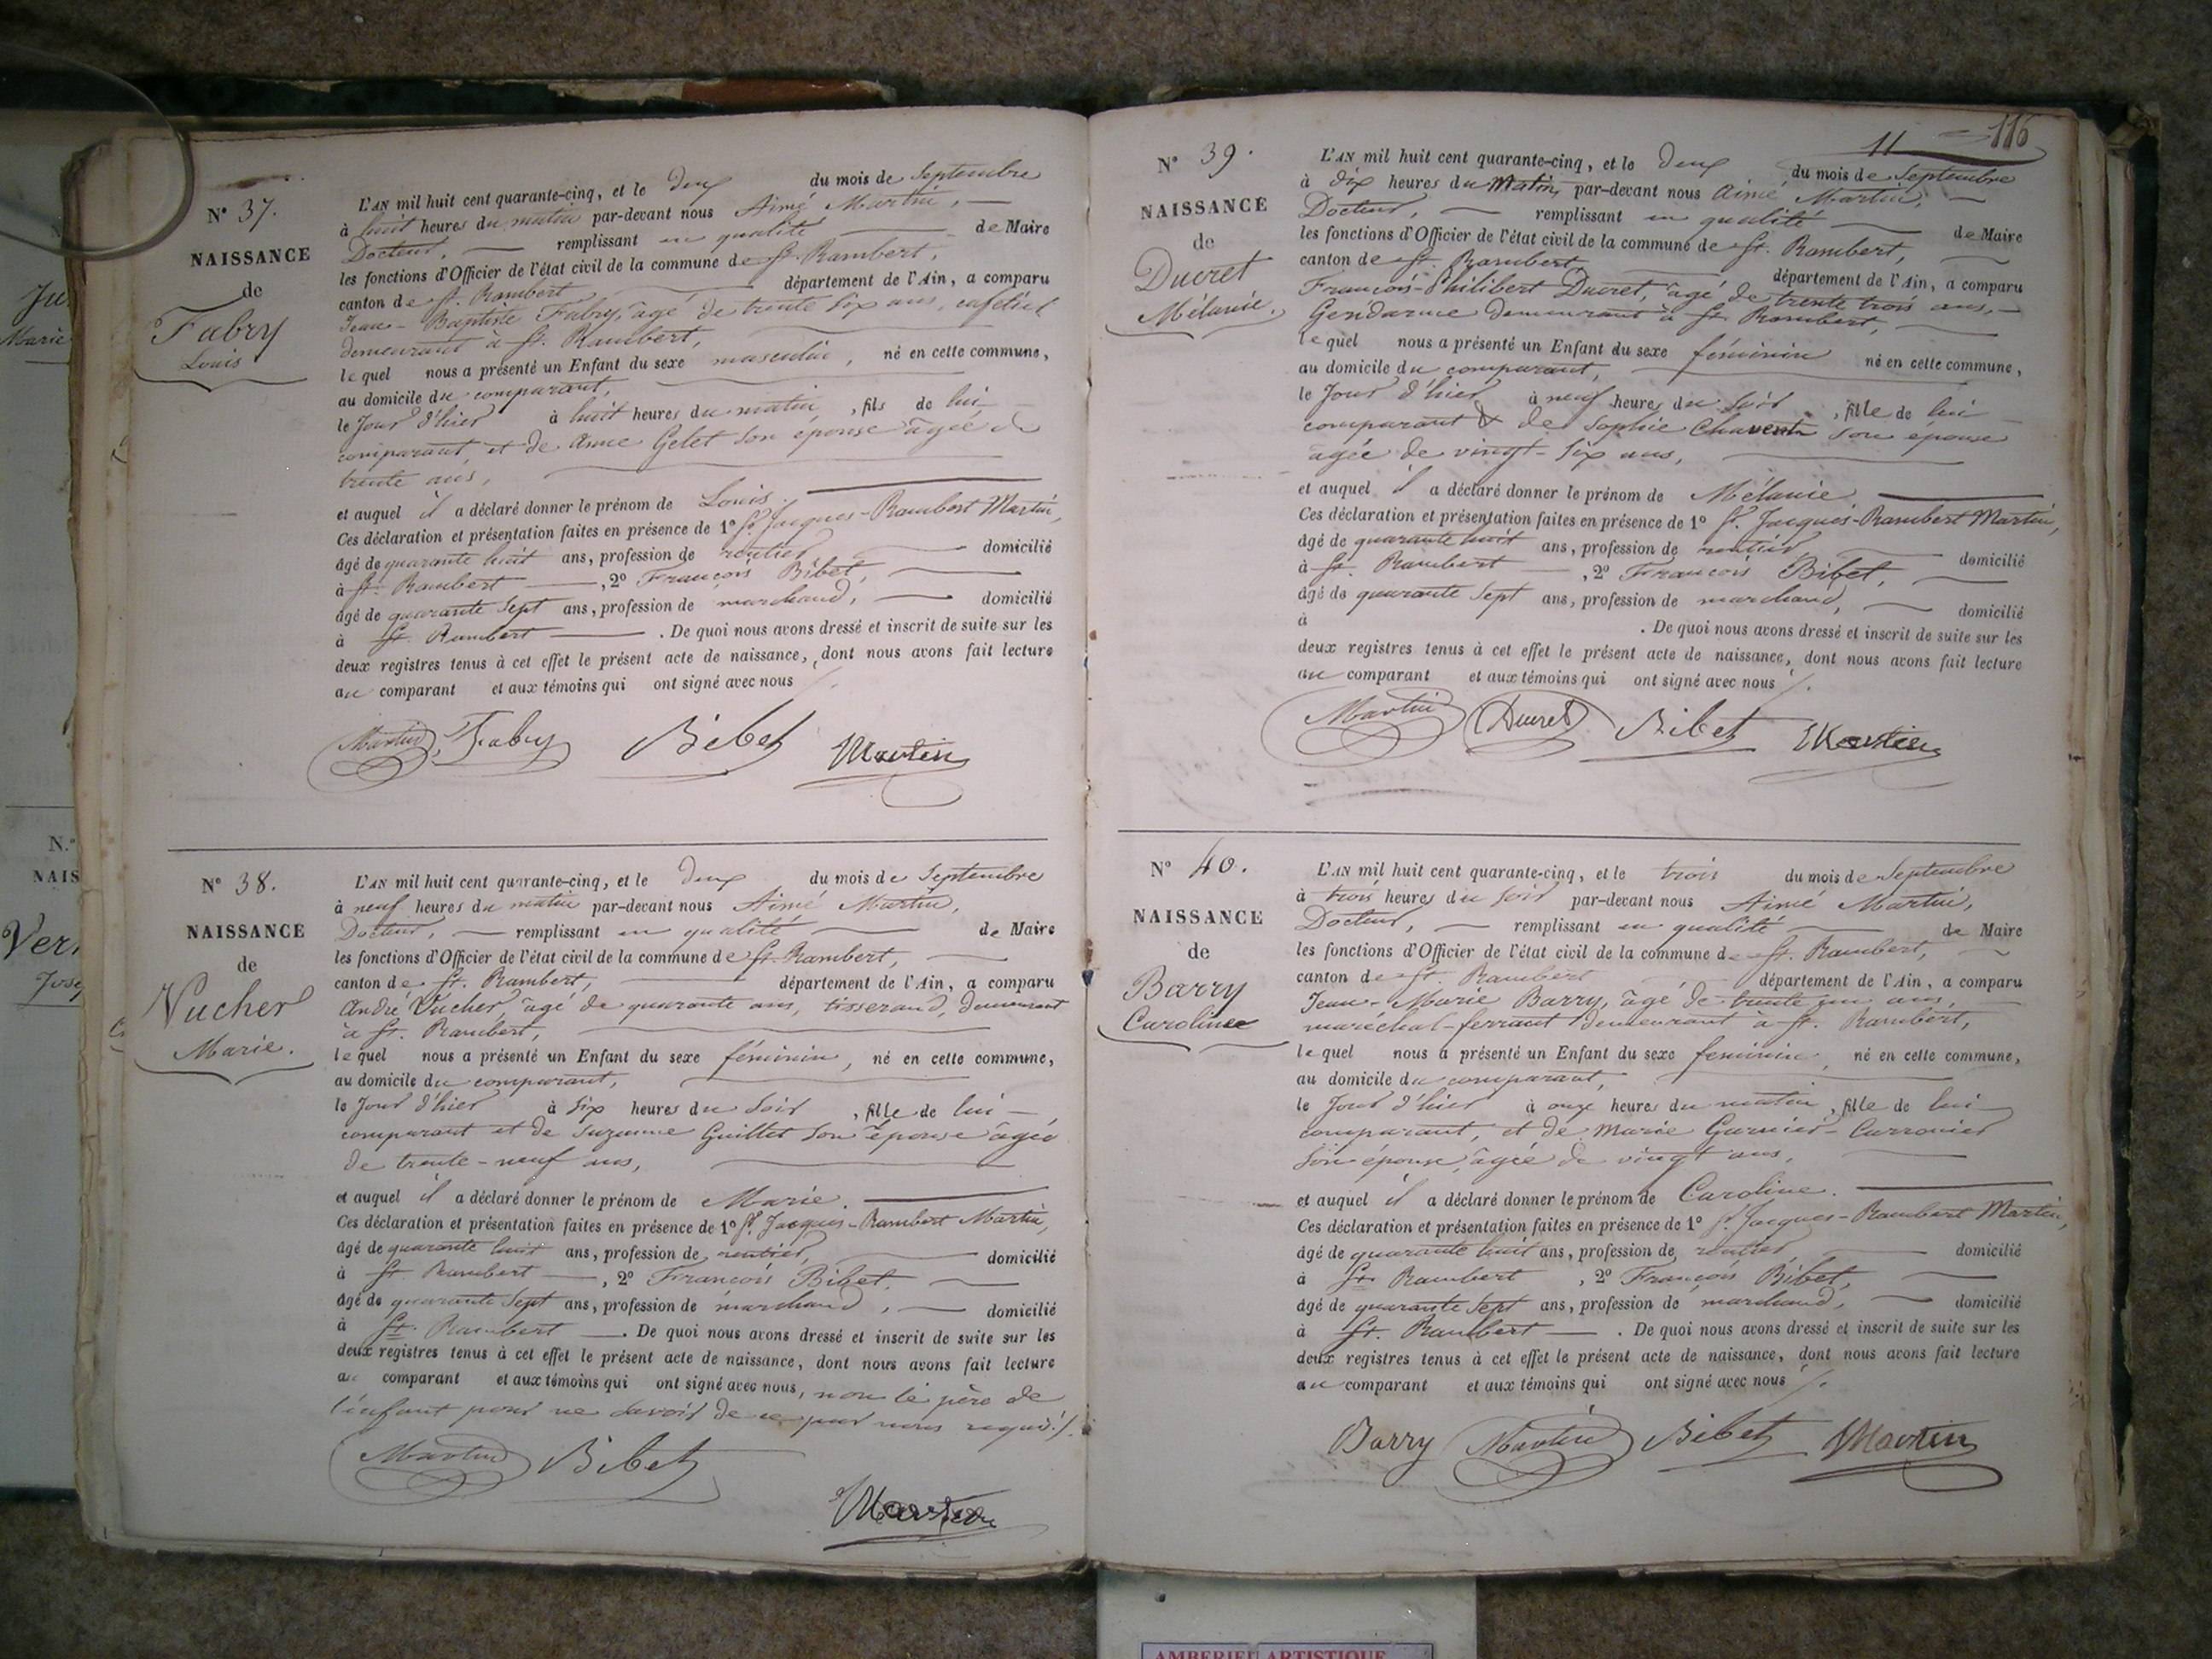 Nº 37.
NAISSANCE
de
Fabry
Louis
L'AN mil huit cent quarante-cinq, et le deux du mois de Septembre
à huit heures du matin par-devant nous Aimé Martin,
Docteur, remplissant en qualité de Maire
les fonctions d'Officier de l'état civil de la commune de St. Rambert,
canton de St. Rambert département de l'Ain, a comparu
Jean-Baptiste Fabry, âgé de trente six ans, cafetier
demeurant à St. Rambert,
lequel nous a présenté un Enfant du sexe masculin, né en cette commune,
au domicile du comparant,
le Jour d'hier à huit heures du matin, fils de lui
comparant et de Anne Gelet son épouse âgée de
trente ans,
et auquel il a déclaré donner le prénom de Louis.
Ces déclaration et présentation faites en présence de 1º Sr. Jacques-Rambert Martin,
âgé de quarante huit ans, profession de rentier, domicilié
à St. Rambert, 2º François Bibet,
âgé de quarante sept ans, profession de marchand, domicilié
à St. Rambert. De quoi nous avons dressé et inscrit de suite sur les
deux registres tenus à cet effet le présent acte de naissance, dont nous avons fait lecture
au comparant et aux témoins qui ont signé avec nous ./.
Martin Fabry Bibet Martin
Nº 38.
NAISSANCE
de
Vucher
Marie.
L'AN mil huit cent quarante-cinq, et le deux du mois de Septembre
à neuf heures du matin par-devant nous Aimé Martin,
Docteur, remplissant en qualité de Maire
les fonctions d'Officier de l'état civil de la commune de St. Rambert,
canton de St. Rambert, département de l'Ain, a comparu
André Vucher, âgé de quarante ans, tisserand, demeurant
à St. Rambert,
lequel nous a présenté un Enfant du sexe féminin, né en cette commune,
au domicile du comparant,
le Jour d'hier à six heures du soir, fille de lui
comparant et de Suzanne Guillet son épouse âgée
de trente-neuf ans,
et auquel il a déclaré donner le prénom de Marie.
Ces déclaration et présentation faites en présence de 1º Sr. Jacques-Rambert Martin,
âgé de quarante huit ans, profession de rentier, domicilié
à St. Rambert, 2º François Bibet,
âgé de quarante sept ans, profession de marchand, domicilié
à St. Rambert. De quoi nous avons dressé et inscrit de suite sur les
deux registres tenus à cet effet le présent acte de naissance, dont nous avons fait lecture
au comparant et aux témoins qui ont signé avec nous, non le père de
l'enfant pour ne savoir de ce par nous requis ./.
Martin Bibet
Martin
11 116
Nº 39.
NAISSANCE
de
Ducret
Mélanie.
L'AN mil huit cent quarante-cinq, et le deux du mois de Septembre
à dix heures du Matin, par-devant nous Aimé Martin,
Docteur, remplissant en qualité de Maire
les fonctions d'Officier de l'état civil de la commune de St. Rambert,
canton de St. Rambert, département de l'Ain, a comparu
François-Philibert Ducret, âgé de trente trois ans,
Gendarme demeurant à St. Rambert,
lequel nous a présenté un Enfant du sexe féminin né en cette commune,
au domicile du comparant,
le Jour d'hier à neuf heures du soir, fille de lui
comparant & de Sophie Chaventn son épouse
âgée de vingt-six ans,
et auquel il a déclaré donner le prénom de Mélanie
Ces déclaration et présentation faites en présence de 1º Sr. Jacques-Rambert Martin,
âgé de quarante huit ans, profession de rentier domicilié
à St. Rambert, 2º François Bibet,
âgé de quarante sept ans, profession de marchand, domicilié
à . De quoi nous avons dressé et inscrit de suite sur les
deux registres tenus à cet effet le présent acte de naissance, dont nous avons fait lecture
au comparant et aux témoins qui ont signé avec nous ./.
Martin Ducret Bibet Martin
Nº 40.
NAISSANCE
de
Barry
Caroline
L'AN mil huit cent quarante-cinq, et le trois du mois de Septembre
à trois heures du soir par-devant nous Aimé Martin,
Docteur, remplissant en qualité de Maire
les fonctions d'Officier de l'état civil de la commune de St. Rambert,
canton de St. Rambert département de l'Ain, a comparu
Jean-Marie Barry, âgé de trente un ans,
maréchal-ferrant demeurant à St. Rambert,
lequel nous a présenté un Enfant du sexe féminin, né en cette commune,
au domicile du comparant,
le Jour d'hier à onze heures du matin, fille de lui
comparant, et de Marie Garnier-Carronier
son épouse, âgée de vingt ans,
et auquel il a déclaré donner le prénom de Caroline.
Ces déclaration et présentation faites en présence de 1º Sr. Jacques-Rambert Martin,
âgé de quarante huit ans, profession de rentier, domicilié
à St. Rambert, 2º François Bibet,
âgé de quarante sept ans, profession de marchand, domicilié
à St. Rambert. De quoi nous avons dressé et inscrit de suite sur les
deux registres tenus à cet effet le présent acte de naissance, dont nous avons fait lecture
au comparant et aux témoins qui ont signé avec nous ./.
Barry Martin Bibet Martin
Marie
N.º
NAIS
AMBERIEU ARTISTIQUE